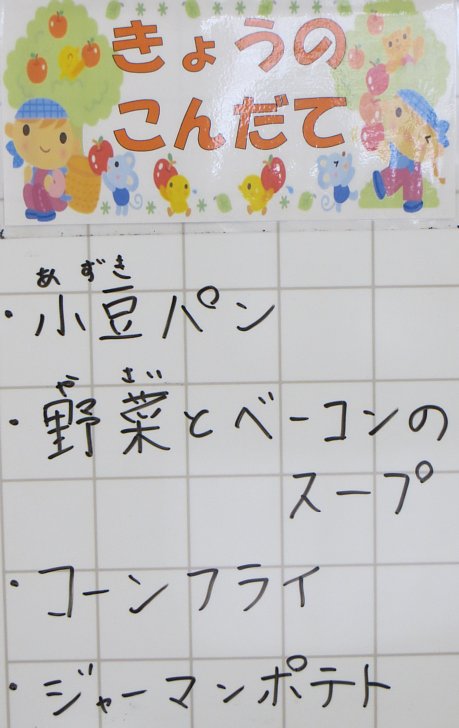 きょうの
こんだて
あずき
・小豆パン
やさい
・野菜とベーコンの
スープ
・コーンフライ
・ジャーマンポテト